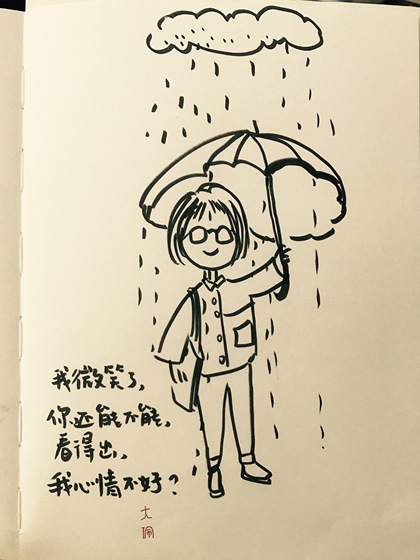 我微笑了,
你还能不能,
看得出,
我心情不好?